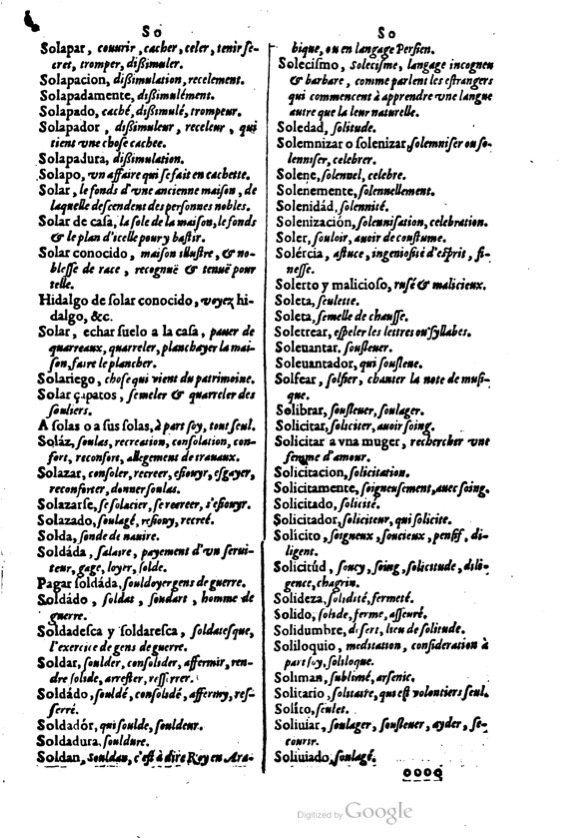 So
Solapar, couurir, cacher, celer, tenir se-
cret, tromper, dißimuler.
Solapacion, dißimulation, recelement.
Solapadamente, dißimulément.
Solapado, caché, dißimulé, trompeur.
Solapador, dißimuleur, receleur, qui
tient vne chose cachee.
Solapadura, dißimulation.
Solapo, vn affaire qui se fait en cachette.
Solar, le fonds d'vne ancienne maison, de
laquelle descendent des personnes nobles.
Solar de casa, la sole de la maison, le fonds
& le plan d'icelle pour y bastir.
Solar conocido, maison illustre, & no-
blesse de race, recognuë & tenuë pour
telle.
Hidalgo de solar conocido, voyez hi-
dalgo, &c.
Solar, echar suelo a la casa, pauer de
quarreaux, quarreler, planchayer la mai-
son, faire le plancher.
Solariego, chose qui vient du patrimoine.
Solar çapatos, semeler & quarreler des
souliers.
A solas o a sus solas, à part soy, tout seul.
Soláz, soulas, recreation, consolation, con-
fort, reconfort, allegement de trauaux.
Solazar, consoler, recreer, esiouyr, esgayer,
reconforter, donner soulas.
Solazarse, se solacier, se recreer, s'esiouyr.
Solazado, soulagé, resiouy, recreé.
Solda, sonde de nauire.
Soldáda, salaire, payement d'vn serui-
teur, gage, loyer, solde.
Pagar soldáda, souldoyer gens de guerre.
Soldádo, soldat, soudart, homme de
guerre.
Soldadesca y soldaresca, soldatesque,
l'exercice de gens de guerre.
Soldar, soulder, consolider, affermir, ren-
dre solide, arrester, resserrer.
Soldádo, souldé, consolidé, affermy, res-
serré.
Soldadór, qui soulde, souldeur.
Soldadura, souldure.
Soldan, souldan, c'est à dire Rey en Ara-
So
bique, ou en langage Persien.
Solecismo, solecisme, langage incogneu
& barbare, comme parlent les estrangers
qui commencent à apprendre vne langue
autre que la leur naturelle.
Soledad, solitude.
Solemnizar o solenizar, solemniser ou so-
lenniser, celebrer.
Solene, solennel, celebre.
Solenemente, solennellement.
Solenidád, solennité.
Solenización, solennisation, celebration.
Soler, souloir, auoir de coustume.
Solércia, astuce, ingeniosité d'esprit, fi-
nesse.
Solerto y malicioso, rusé & malicieux.
Soleta, seulette.
Soleta, semelle de chausse.
Soletrear, espeler les lettres ou syllabes.
Soleuantar, sousleuer.
Soleuantador, qui sousleue.
Solfear, solfier, chanter la note de musi-
que.
Solibrar, sousleuer, soulager.
Solicitar, soliciter, auoir soing.
Solicitar a vna muger, rechercher vne
femme d'amour.
Solicitacion, solicitation.
Solicitamente, soigneusement, auec soing.
Solicitado, solicité.
Solicitador, soliciteur, qui solicite.
Solícito, soigneux, soucieux, pensif, di-
ligent.
Solicitúd, soucy, soing, solicitude, dili-
gence, chagrin.
Solideza, solidité, fermeté.
Solido, solide, ferme, asseuré.
Solidumbre, desert, lieu de solitude.
Soliloquio, meditation, consideration à
part soy, soliloque.
Soliman, sublimé, arsenic.
Solitario, solitaire, qui est volontiers seul.
Solíto, seulet.
Soliuiar, soulager, sousleuer, ayder, se-
courir.
Soliuiado, soulagé.
oooo
Digitized by Google